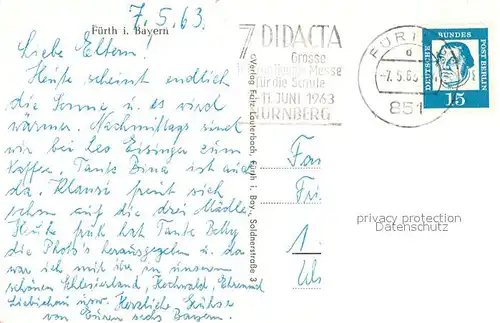 7.5.63.
Fürth i. Bayern
Liebe Eltern!
Heute scheint endlich
die Sonne u. es wird
wärmer. Nachmittags sind
wir bei Leo Eisinger zum
Kaffee, Tante Bina ist auch
da. Klausi freut sich
schon auf die drei Mädle.
Heute früh hat Tante Betty
die Photo's herausgegeben u. da
war ich mit ihr in unserem
schönen Schlesierland, Hochwald,
Liebichau usw. Herzliche Grüsse
von Euren sechs Bayern.
7 DIDACTA
Grosse
Messe
für die Schule
11. JUNI 1963
NÜRNBERG
FÜR
d
-7.5.63
851
DEUTSCHE BUNDESPOST BERLIN
15
Verlag Fritz Lauterbach, Fürth i. Bay., Soldnerstraße 3
Fam
Fri
1.
privacy protection
Datenschutz